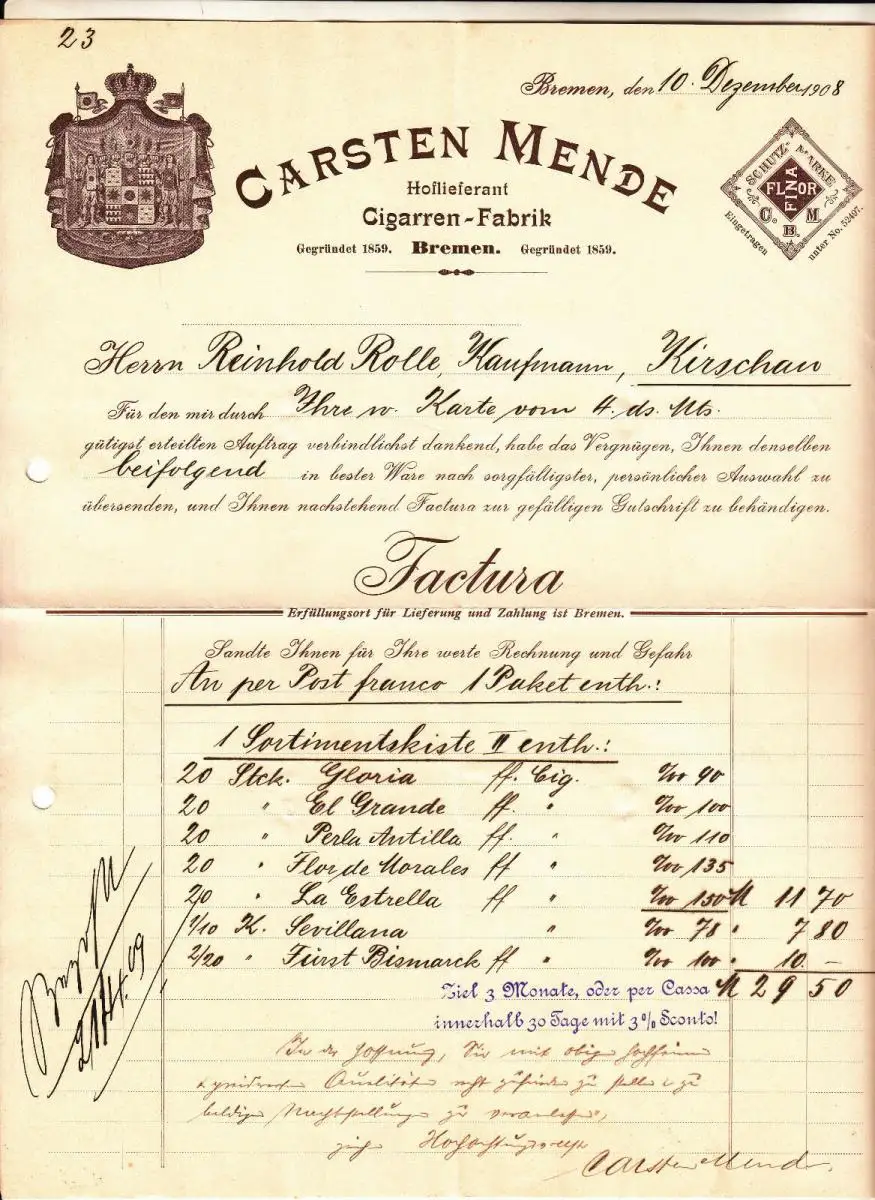 23
Bremen, den 10. Dezember 1908
CARSTEN MENDE
Hoflieferant
Cigarren-Fabrik
Gegründet 1859. Bremen. Gegründet 1859.
SCHUTZ MARKE
FLOR
FINA
C. M.
B.
Eingetragen unter No. 52407.
Herrn Reinhold Rolle, Kaufmann, Kirschau
Für den mir durch Ihre w. Karte vom 4. ds. Mts.
gütigst erteilten Auftrag verbindlichst dankend, habe das Vergnügen, Ihnen denselben
beifolgend in bester Ware nach sorgfältigster, persönlicher Auswahl zu
übersenden, und Ihnen nachstehend Factura zur gefälligen Gutschrift zu behändigen.
Factura
Erfüllungsort für Lieferung und Zahlung ist Bremen.
Sandte Ihnen für Ihre werte Rechnung und Gefahr
An per Post franco 1 Paket enth.:
1 Sortimentskiste II enth.:
20 Stck. Gloria ff. Cig. %00 90
20 " El Grande ff. " %00 100
20 " Perla Antilla ff. " %00 110
20 " Flor de Morales ff " %00 135
20 " La Estrella ff " %00 150 M 11 70
1/10 K. Sevillana " %00 78 " 7 80
2/20 " Fürst Bismarck ff " %00 100 " 10 –
Ziel 3 Monate, oder per Cassa M 29 50
innerhalb 30 Tage mit 3% Sconto!
In der Hoffnung, Sie mit obigen hochfeinen
& preiswerten Qualitäten recht zufrieden zu stellen & zu
baldigen Nachbestellungen zu veranlassen,
zeichne Hochachtungsvoll
Carsten Mende.